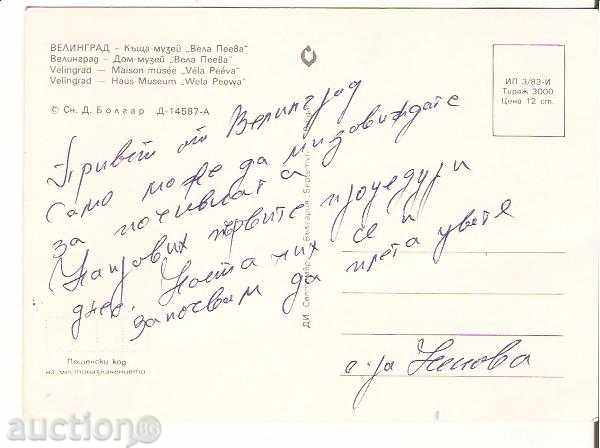 ВЕЛИНГРАД – Къща-музей „Вела Пеева"
Велинград – Дом-музей „Вела Пеева"
Velingrad — Maison musée „Véla Pééva"
Velingrad — Haus Museum „Wela Peewa"
© Сн. Д. Болгар Д-14587-А
ИП 3/83-И
Тираж 3000
Цена 12 ст.
Привет от Велинград
Само може да ми завиждате
за почивката
първите процедури
днес. се и
започвам да плета цветя
с-ја Ненова
Пощенски код
на местоназначението
auction